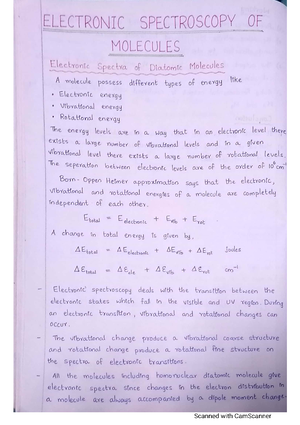 ELECTRONIC SPECTROSCOPY OF
MOLECULES
Electronic Spectra of Diatomic Molecules
A molecule possess different types of energy like
• Electronic energy
• Vibrational energy
• Rotational energy
The energy levels are in a way that in an electronic level there
exists a large number of vibrational levels and in a given
vibrational level there exists a large number of rotational levels.
The seperation between electronic levels are of the order of 10⁶ cm⁻¹
Born-Oppen Heimer approximation says that the electronic,
vibrational and rotational energies of a molecule are completely
independent of each other.
E total = E electronic + E vib + E rot
A change in total energy is given by,
ΔE total = ΔE electronic + ΔE vib + ΔE rot Joules
ΔƐ total = ΔƐ ele + ΔƐ vib + ΔƐ rot cm⁻¹
- Electronic spectroscopy deals with the transition between the
electronic states which fall in the visible and UV region. During
an electronic transition, vibrational and rotational changes can
occur.
- The vibrational change produce a vibrational coarse structure
and rotational change produce a rotational fine structure on
the spectra of electronic transitions.
- All the molecules including homonuclear diatomic molecule give
electronic spectra since changes in the electron distribution in
a molecule are always accompanied by a dipole moment change.
Scanned with CamScanner